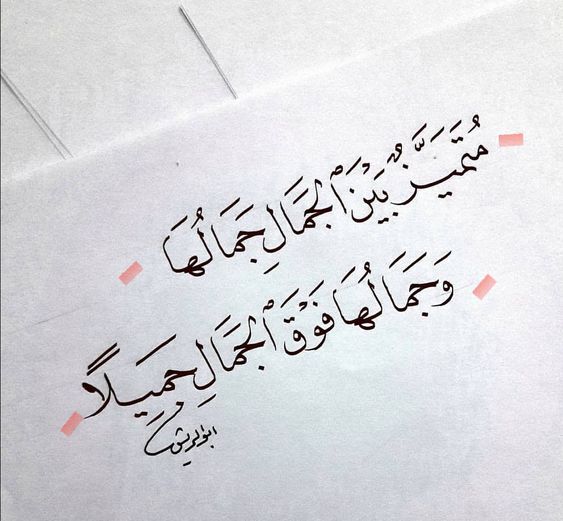 مُتَمَيَّزٌ بَيْنَ ٱلْجَمَالِ جَمَالُهَا
وَجَمَالُهَا فَوْقَ ٱلْجَمَالِ جَمِيلًا